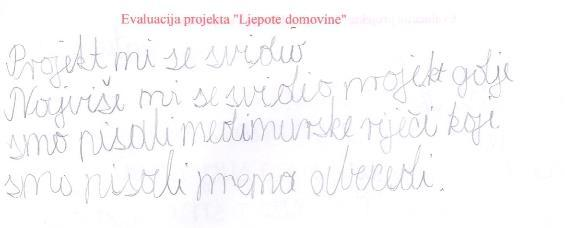 Evaluacija projekta "Ljepote domovine"
Projekt mi se svidio
Najviše mi se svidio projekt gdje
smo pisali međimurske riječi koji
smo pisali prema abecedi.